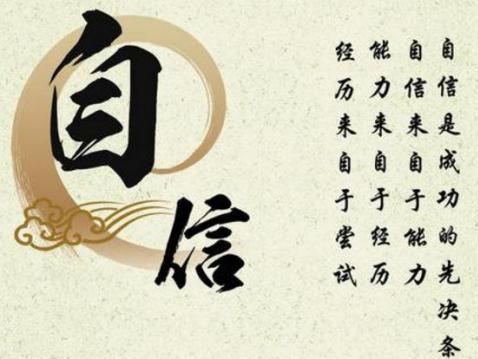 自信
自信是成功的先决条
自信来自于能力
能力来自于经历
经历来自于尝试